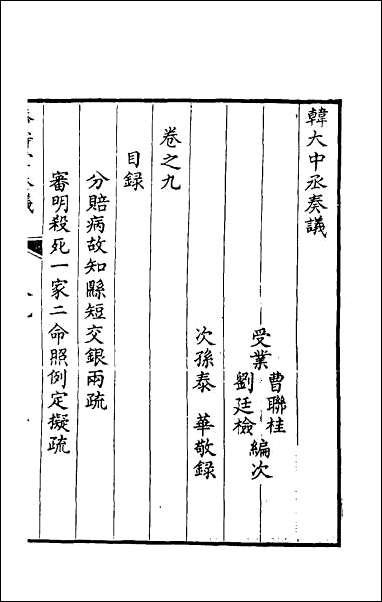 韓大中丞奏議
受業
曹聯桂
劉廷檢
編次
次孫泰 華敬録
卷之九
目録
分賠病故知縣短交銀兩疏
審明殺死一家二命照例定擬疏